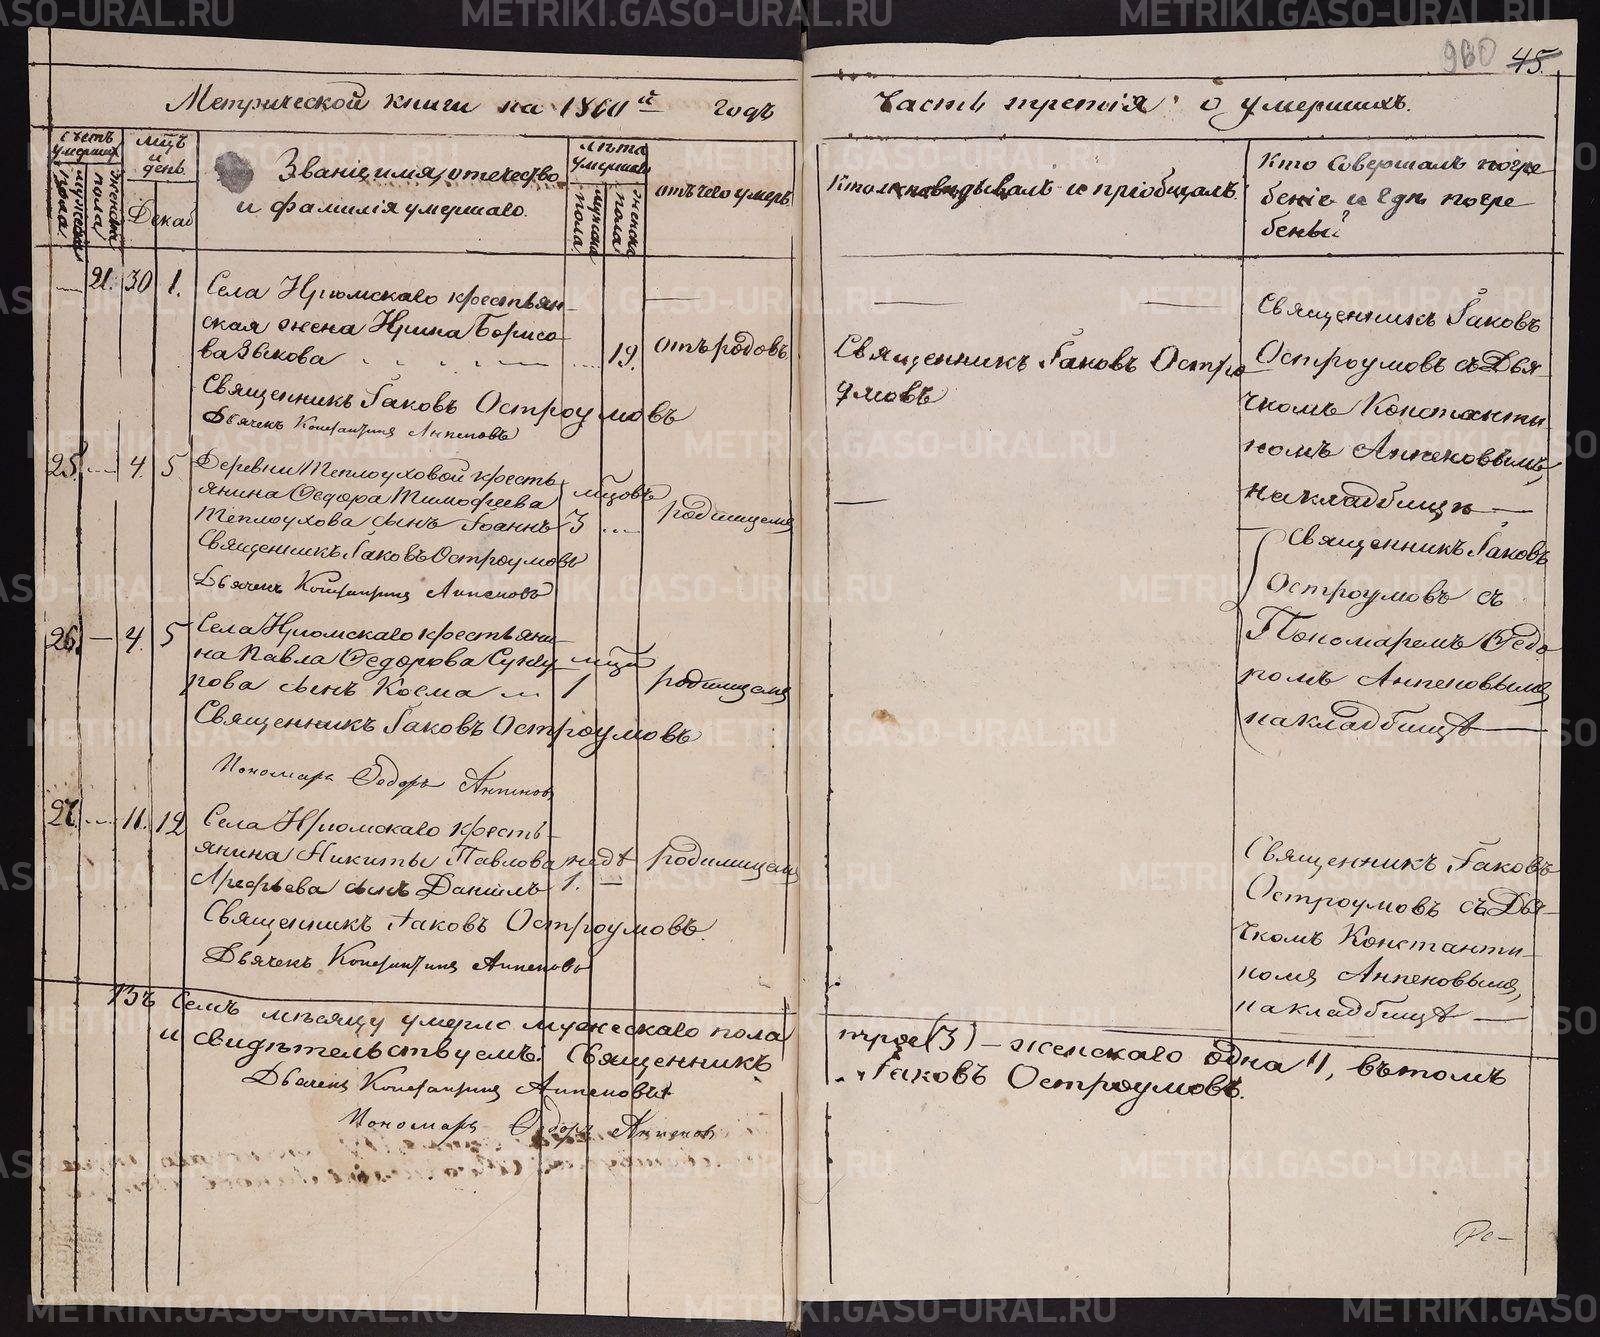 930 45.
Метрической книги на 1860й годъ
Часть третія о умершихъ.
Счетъ умершихъ
мужеска пола.
женска пола
мцъ и день
Декаб
Званіе, имя, отечество
и фамилія умершаго.
лѣта умершаго
мужска пола
женска пола
отъ чего умеръ.
Кто исповѣдывалъ и пріобщалъ.
Кто совершалъ погре
беніе и гдѣ погре
бены?
21. 30 1.
Села Ирюмскаго крестьян-
ская жена Ирина Борисо-
ва Зыкова 19. отъ родовъ
Священникъ Іаковъ Остроумовъ
Дьячекъ Константинъ Анпеновъ
Священникъ Іаковъ Остро
умовъ
Священникъ Іаковъ
Остроумовъ съ Дья-
чкомъ Константи
номъ Анпеновымъ,
на кладбищѣ
25. 4. 5
Деревни Теплоуховой кресть
янина Ѳедора Тимофеева мцовъ
Теплоухова сынъ Іоаннъ 3 родимцемъ
Священникъ Іаковъ Остроумовъ
Дьячекъ Константинъ Анпеновъ
Священникъ Іаковъ
Остроумовъ съ
Пономаремъ Ѳедо
ромъ Анпеновымъ
на кладбищѣ
26. 4. 5
Села Ирюмскаго крестьяни-
на Павла Ѳедорова
рова сынъ Косма 1 родимцемъ
Священникъ Іаковъ Остроумовъ
Пономарь Ѳедоръ Анпеновъ
27. 11. 12
Села Ирюмскаго кресть-
янина Никиты Павлова недѣ родимцемъ
Арефьева сынъ Даніилъ 1.
Священникъ Іаковъ Остроумовъ.
Дьячекъ Константинъ Анпеновъ
Священникъ Іаковъ
Остроумовъ съ Дья-
чкомъ Константи-
номъ Анпеновымъ,
на кладбищѣ
Въ семъ мѣсяцу умерло мужескаго пола трое (3) – женскаго одна 1, въ томъ
и свидѣтельствуемъ: Священникъ Іаковъ Остроумовъ.
Дьячекъ Константинъ Анпеновъ
Пономарь Ѳедоръ Анпеновъ
Ре-
METRIKI.GASO-URAL.RU